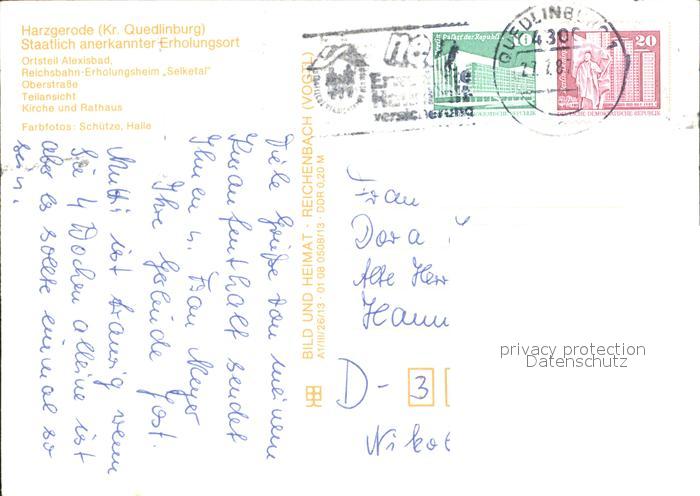 Harzgerode (Kr. Quedlinburg)
Staatlich anerkannter Erholungsort
Ortsteil Alexisbad,
Reichsbahn-Erholungsheim „Selketal"
Oberstraße
Teilansicht
Kirche und Rathaus
Farbfotos: Schütze, Halle
Palast der Republik
10
DEMOKRATISCHE REPUBLIK
20
DEUTSCHE DEMOKRATISCHE REPUBLIK
QUEDLINBURG 1
430
versicherung
BILD UND HEIMAT · REICHENBACH (VOGTL)
A1/III/26/13 · 01 08 0508/13 · DDR 0,20 M
Viele Grüße von meinem
Kuraufenthalt sendet
Ihnen u. Frau Meyer
Ihre Gelinde Jost.
Mutti ist traurig wenn
Sie 4 Wochen alleine ist
aber es sollte einmal so
sein.
Frau
Dora
Alte Herr
Hann
D-3
Nikol
privacy protection
Datenschutz